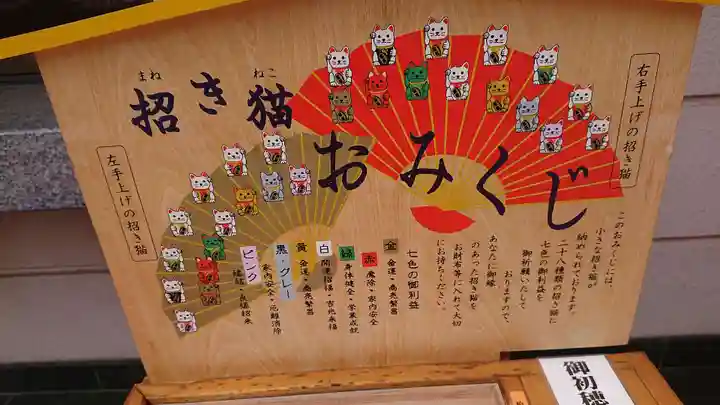 招き猫
まね
ねこ
おみくじ
右手上げの招き猫
左手上げの招き猫
このおみくじには、
小さな招き猫が
納められております。
二十八種類の招き猫に
七色の御利益を
御祈願いたして
おりますので、
あなたに御縁
のあった招き猫を
お財布等に入れて大切
にお持ちください。
七色の御利益
金 金運・商売繁盛
赤 魔除・家内安全
緑 身体健全・学業成就
白 開運招福・吉兆来福
黄 金運・商売繁盛
黒・グレー 家内安全・厄難消除
ピンク 縁結・良縁招来
御初穂